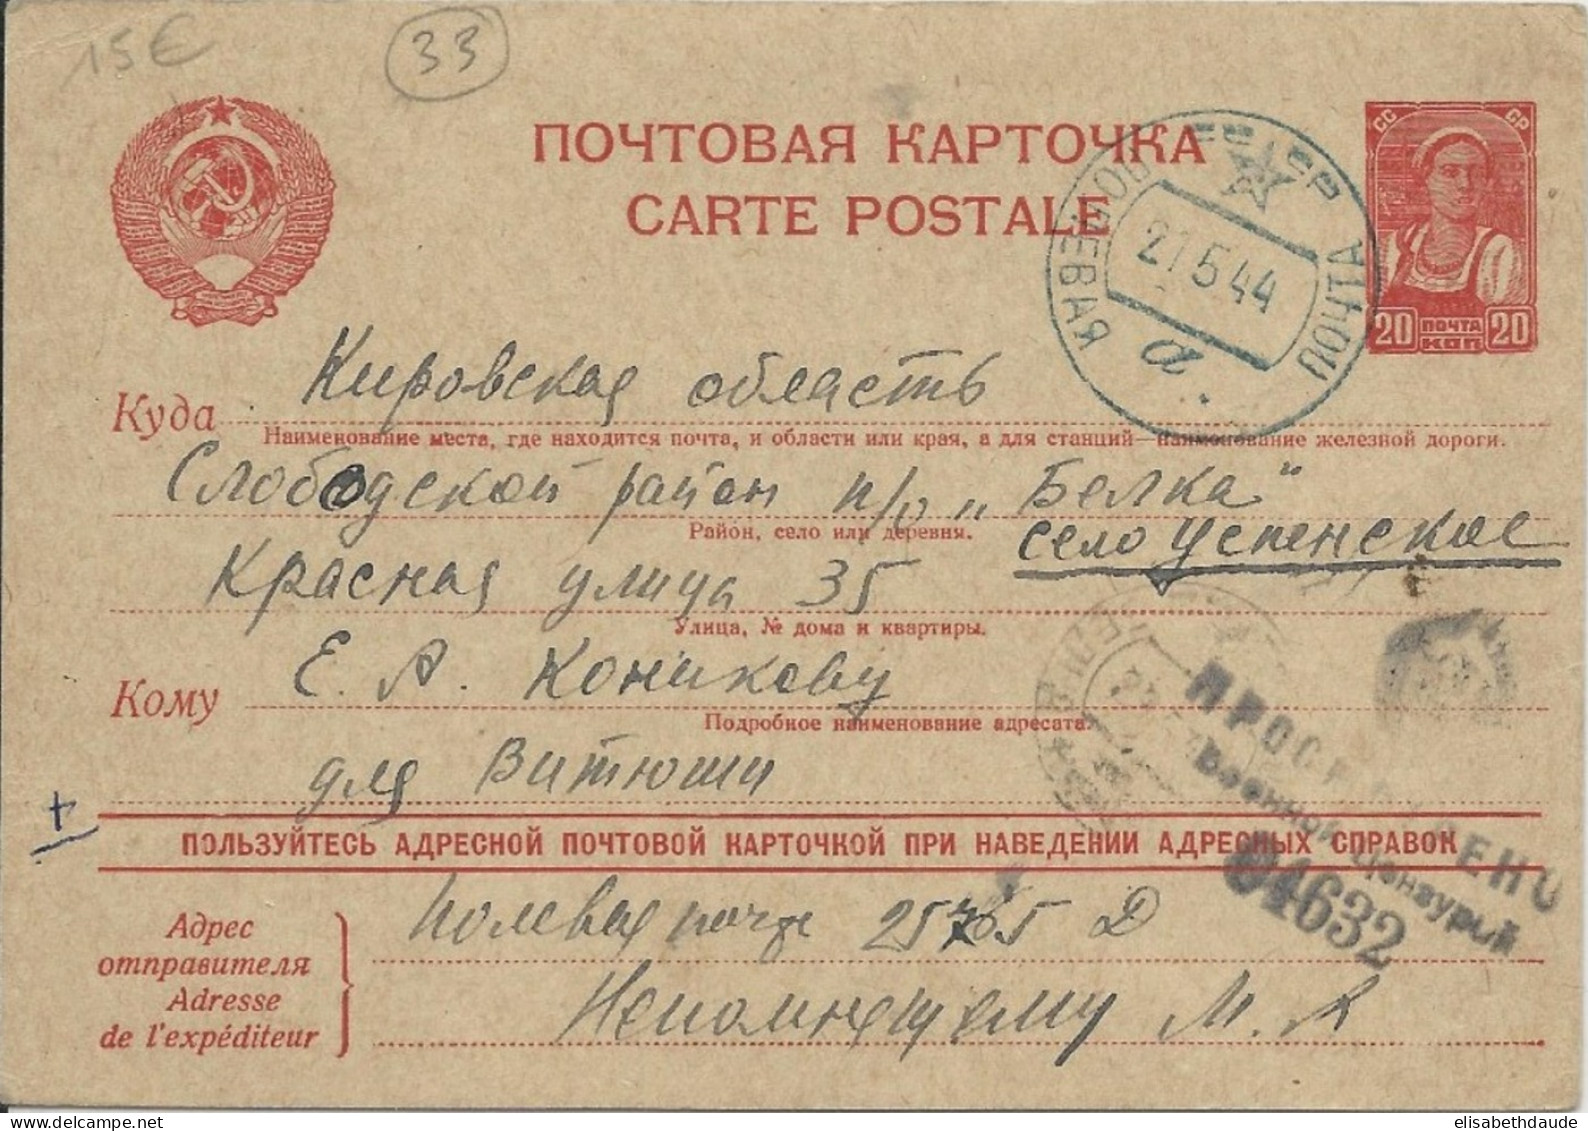 15€
33
ПОЧТОВАЯ КАРТОЧКА
CARTE POSTALE
СС СР
20 ПОЧТА 20
КОП
ПОЛЕВАЯ ПОЧТА
21 5 44
а
Кировская область
Куда
Наименование места, где находится почта, и области или края, а для станций—наименование железной дороги.
Слободской район п/о „Белка"
Район, село или деревня.
село Успенское
Красная улица 35
Улица, № дома и квартиры.
Е. А. Коникову
Кому
Подробное наименование адресата.
для Витюши
ПРОСМОТРЕНО
Военной Цензурой
04632
ПОЛЬЗУЙТЕСЬ АДРЕСНОЙ ПОЧТОВОЙ КАРТОЧКОЙ ПРИ НАВЕДЕНИИ АДРЕСНЫХ СПРАВОК
Адрес
отправителя
Adresse
de l'expéditeur
Полевая почта 25765 Д
Непомнящему М. А
elisabethdaude